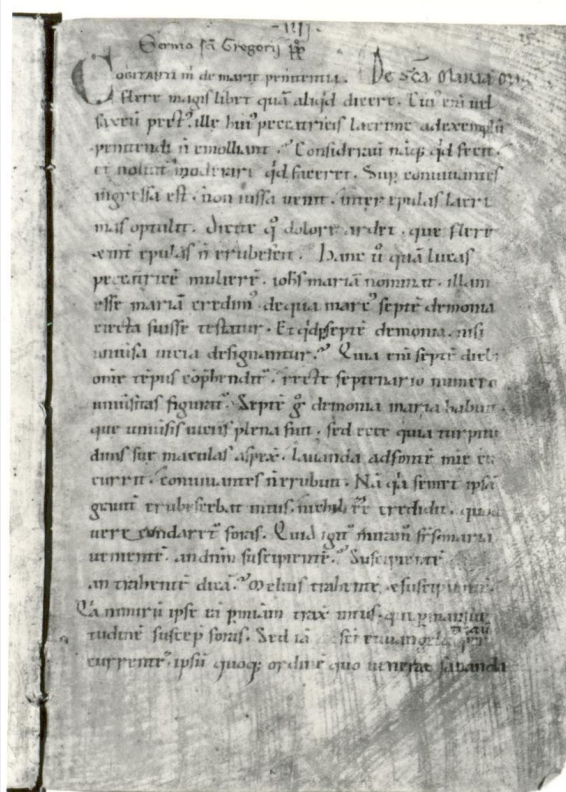 IIII.
Sermo sci Gregorij pp
De sca Maria
Cogitanti m de marie penitentia.
flere magis libet quā aliqd dicere. Cui' eni uel
saxeū pect' ille hui' peccatricis lacrime ad exemplū
penitendi ñ emolliant. Considerauit naq; qd fecit.
et noluit moderari qd faceret. Sup conuiuantes
ingressa est. non iussa uenit. inter epulas lacri
mas optulit. Discite q dolore ardet. que flere
& int epulas ñ erubescit. Hanc ū quā lucas
peccatricē mulierē. iohs mariā nominat. illam
esse mariā credim' de qua marc' septē demonia
eiecta fuisse testatur. Et qd p septē demonia. nisi
uniuisa uicia designantur. Quia eni septē dieb'
omne tēpus cōphendit'. recte septenario numero
uniuisitas figurat'. Septē g° demonia maria habuit.
que uniuisis uiciis plena fuit. sed ecce quia turpitu
dinis sue maculas aspex. lauanda ad fontē mie cu
currit. conuiuantes ñ erubuit. Nā qa semet ipsā
grauit erubescebat intus. nichil eē credidit. quod
uerecundaret' foris. Quid igit' miram' frs. maria
uenientē. an dnm suscipientē. Suscipientē
an trahentē dicā. Melius trahentē & suscipientē.
Qa nimirū ipse eā p miam trax intus. qui p mansue
tudinē suscep foris. Sed iā sci euangelii
currente' ipsū quoq; ordinē quo uenerat sananda